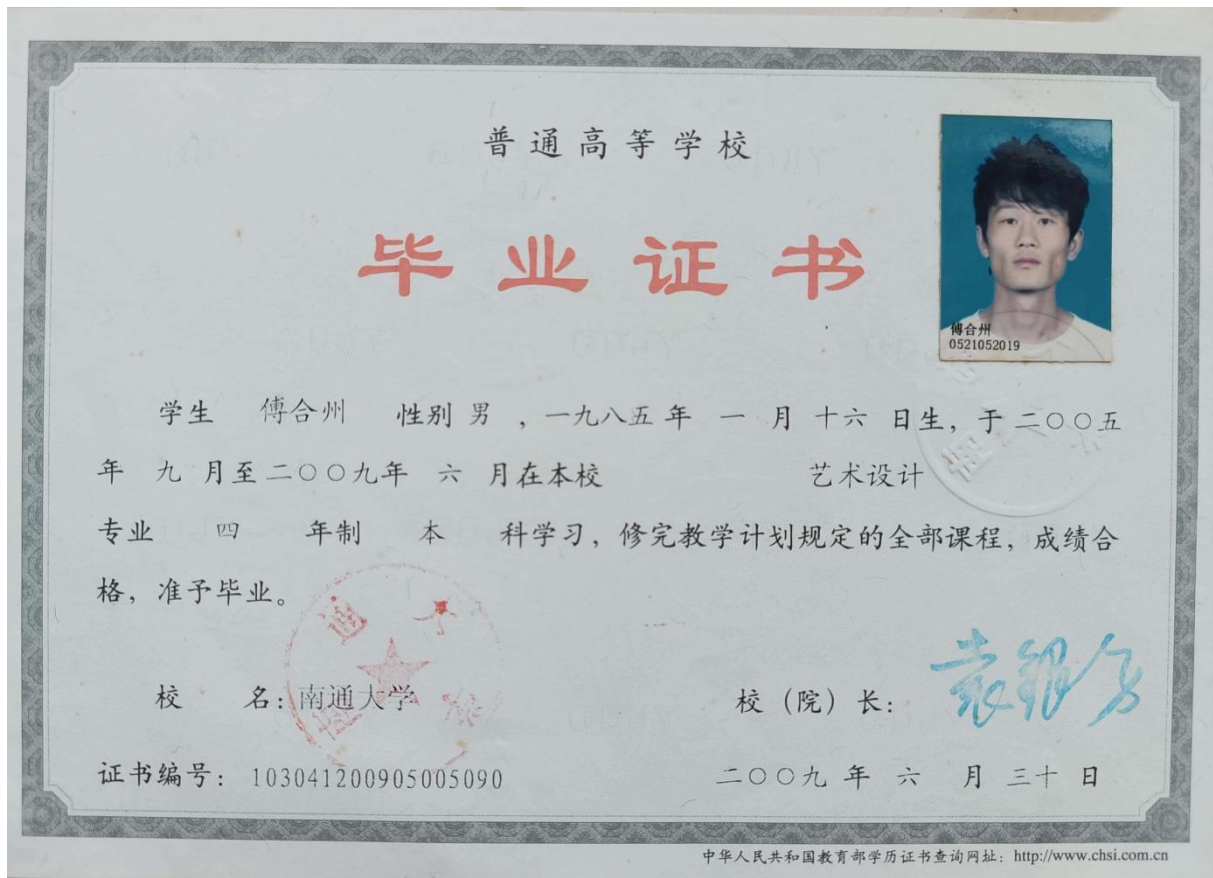 普通高等学校
毕业证书
傅合州
0521052019
学生 傅合州 性别 男 ，一九八五 年 一 月 十六 日生，于 二〇〇五
年 九 月至 二〇〇九年 六 月在本校 艺术设计
专业 四 年制 本 科学习，修完教学计划规定的全部课程，成绩合
格，准予毕业。
校 名：南通大学
校（院）长：
证书编号：103041200905005090
二〇〇九 年 六 月 三十 日
中华人民共和国教育部学历证书查询网址：http://www.chsi.com.cn